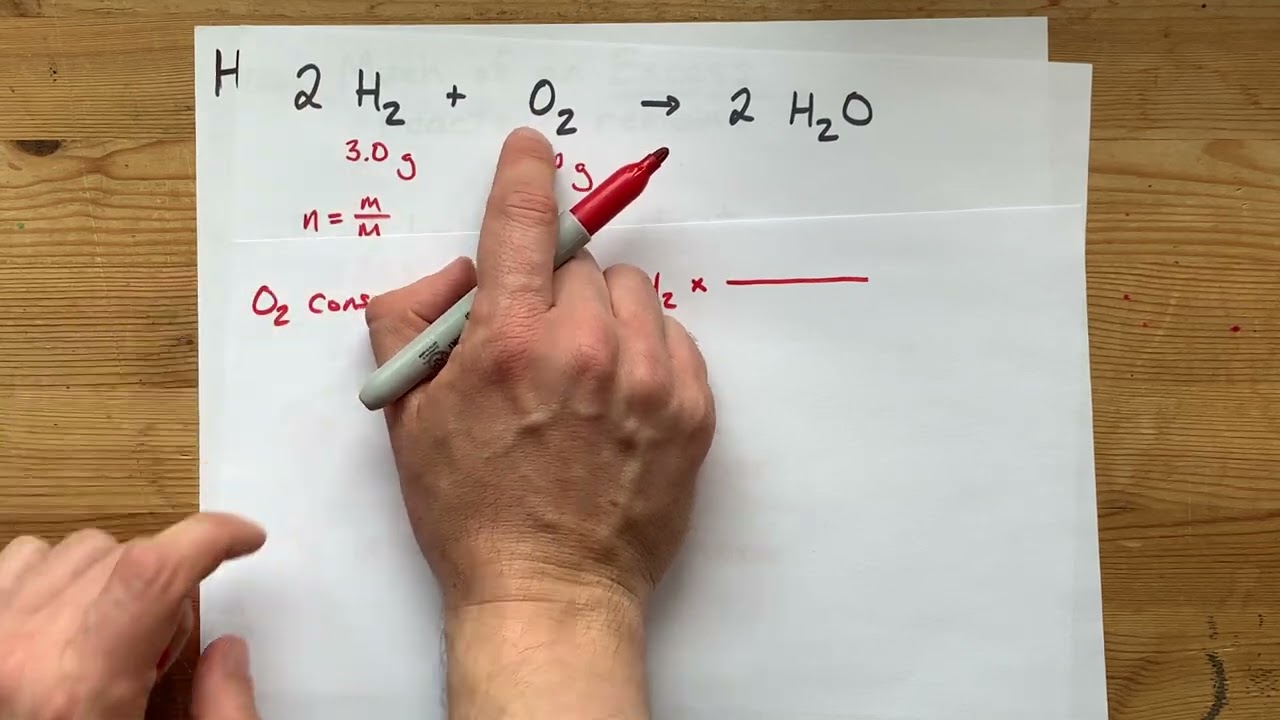 H 2 H₂ + O₂ → 2 H₂O
3.0 g g
n = m/M
O₂ ₂ ×